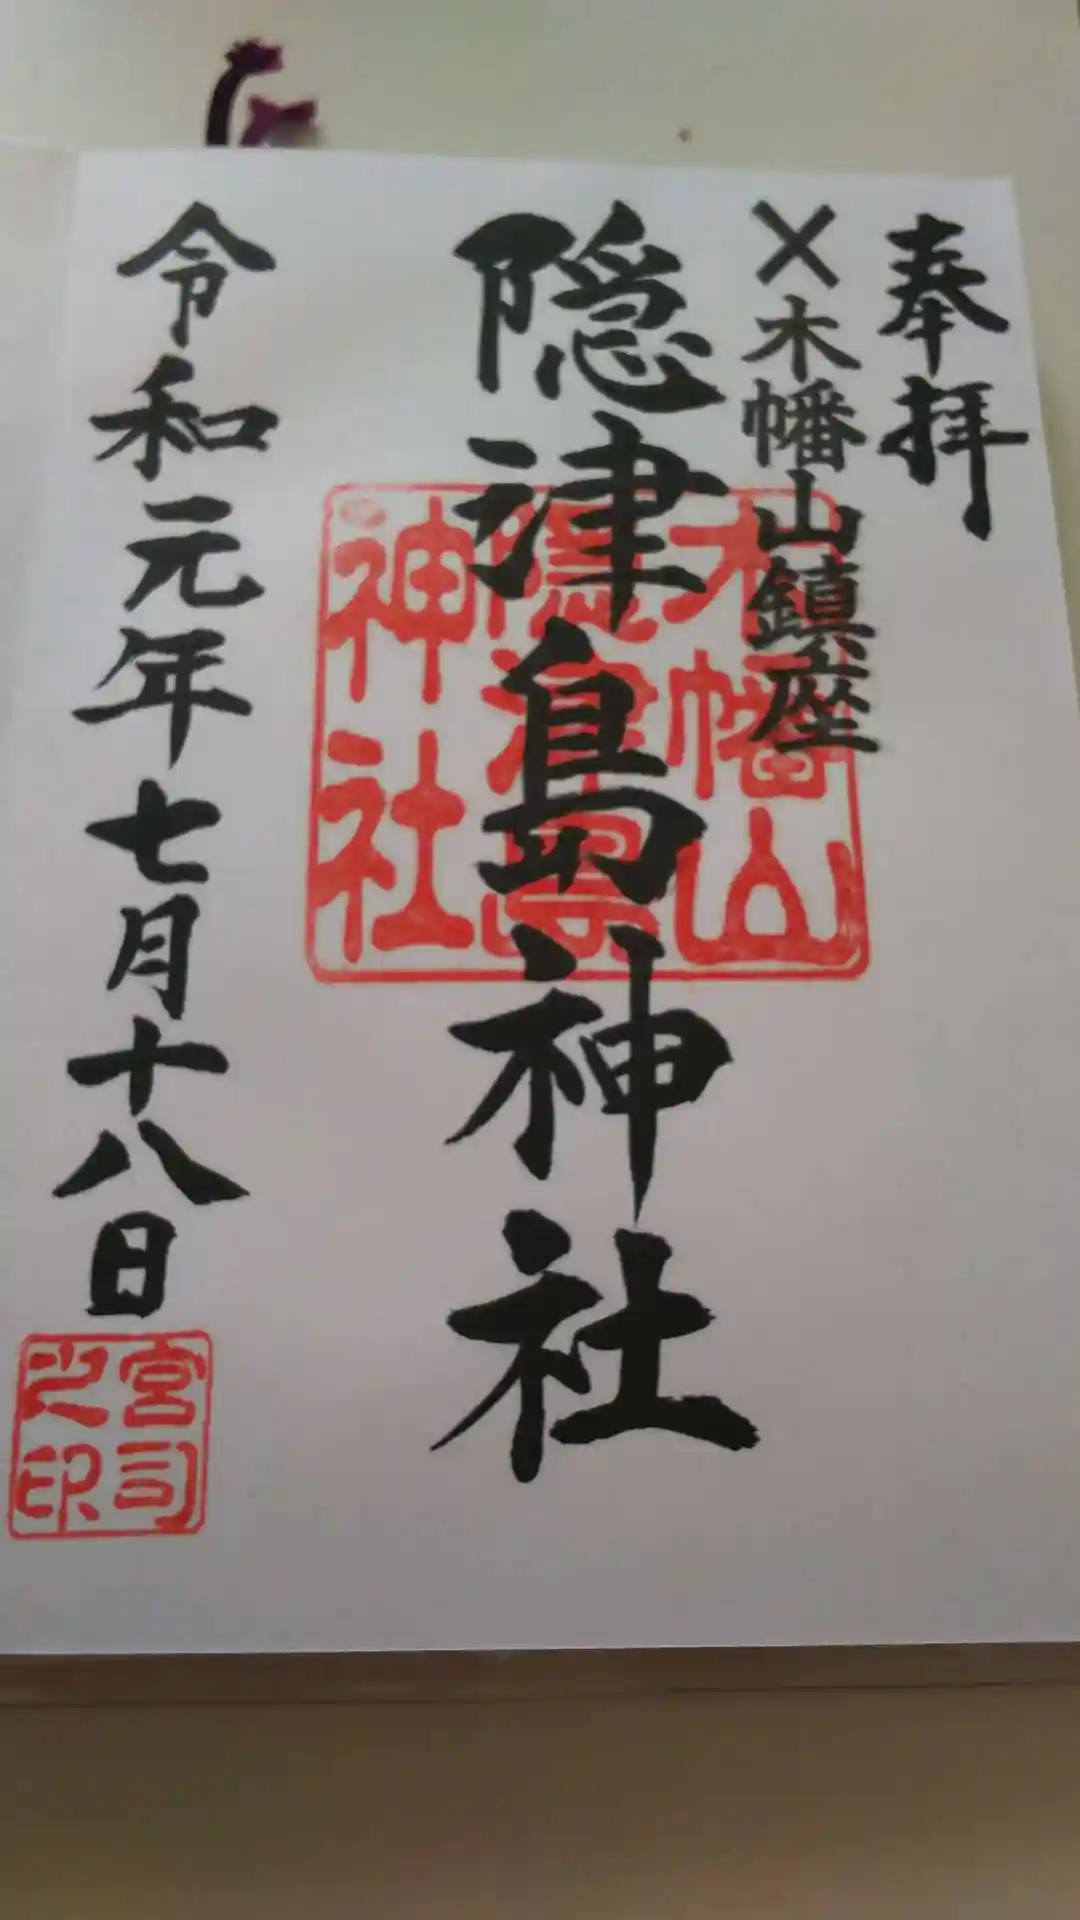 奉拝
×木幡山鎮座
隠津島神社
木幡山
隠津島
神社
令和元年七月十八日
宮司
之印